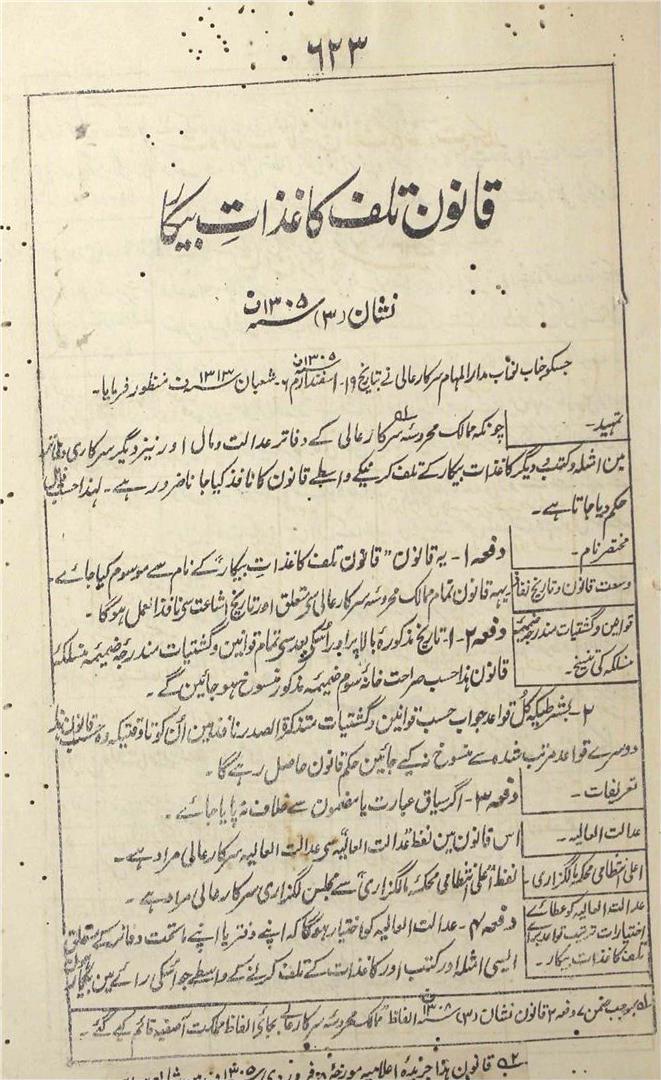 ۶۲۳
قانون تلف کاغذاتِ بیکار
نشان (۳) ۱۳۰۵ سنہ ف
جسکو جناب نواب مدار المہام سرکار عالی نے بتاریخ ۱۹۔ اسفندار ۱۳۰۵ ف م ۶۔ شعبان ۱۳۱۳ سنہ منظور فرمایا۔
تمہید۔ چونکہ ممالک محروسہ سرکار عالی کے دفاتر عدالت و مال اور نیز دیگر سرکاری دفاتر
مین امثلہ و کتب و دیگر کاغذات بیکار کے تلف کرنیکے واسطے قانون کا نافذ کیا جانا ضرور ہے۔ لہذا حسب ذیل
حکم دیا جاتا ہے۔
مختصر نام۔ دفعہ ۱۔ یہ قانون "قانون تلف کاغذاتِ بیکار" کے نام سے موسوم کیا جائے۔
وسعت قانون و تاریخ نفاذ یہہ قانون تمام ممالک محروسہ سرکار عالی سی متعلق اور تاریخ اشاعت سی نافذ العمل ہوگا۔
قوانین و گشتیات مندرجہ ضمیمہ دفعہ ۲۔ ۱۔ تاریخ مذکورۂ بالا پر اور اسکی بعد سی تمام قوانین و گشتیات مندرجہ ضمیمہ منسلکہ
منسلکہ کی تنسیخ۔ قانون ہذا حسب صراحت خانۂ سوم ضمیمہ مذکور منسوخ ہو جائین گے۔
۲۔ بشرطیکہ کل قواعد جواب حسب قوانین و گشتیات متذکرۃ الصدر نافذ ہین ان کو تا وقتیکہ وہ حسب قانون ہذا
دوسرے قواعد مرتب شدہ سے منسوخ نہ کیے جائین حکم قانون حاصل رہے گا۔
تعریفات۔ دفعہ ۳۔ اگر سیاق عبارت یا مضمون سے خلاف نہ پایا جائے۔
عدالت العالیہ۔ اس قانون مین لفظ عدالت العالیہ سی عدالت العالیہ سرکار عالی مراد ہے۔
اعلی انتظامی محکمہ مالگزاری۔ لفظ اعلی انتظامی محکمۂ مالگزاری سے مجلس مالگزاری سرکار عالی مراد ہے۔
عدالت العالیہ کو عطائے دفعہ ۴۔ عدالت العالیہ کو اختیار ہوگا کہ اپنے دفتر یا اپنے ماتحت دفاتر کے متعلق
اختیارات ترتیب قواعد برائے
تلف کاغذات بیکار۔ ایسی امثلہ اور کتب اور کاغذات کے تلف کرنے کے واسطے جو اسکی رائے مین بیکار
۱؎ بموجب ضمن ۷ دفعہ ۲ قانون نشان (۳) ۱۳۰۸ سنہ ف الفاظ ممالک محروسہ سرکار عالی بجای الفاظ مملکت آصفیہ قائم کیے گئے۔
۲؎ قانون ہذا جریدہ اعلامیہ مورخہ